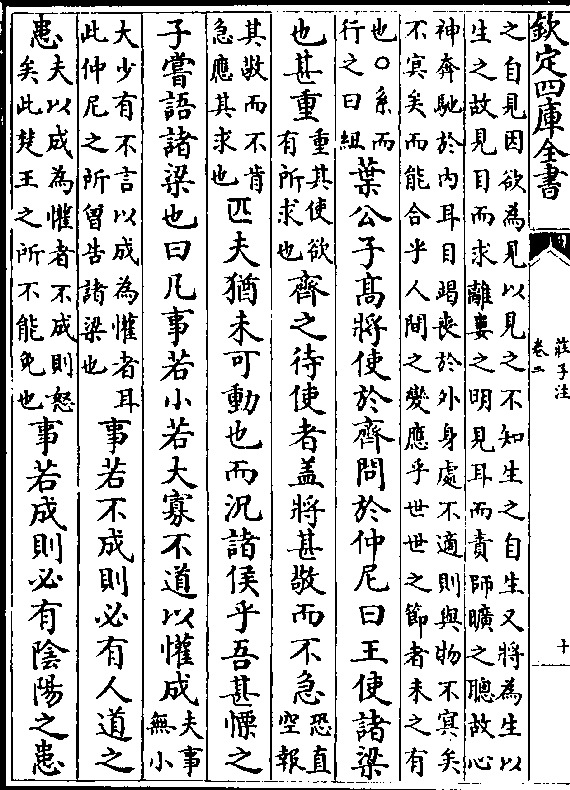 欽定四庫全書
莊子注
卷二
十
之自見因欲為見以見之不知生之自生又將為生以
生之故見目而求離婁之明見耳而責師曠之聰故心
神奔馳於內耳目竭喪於外身處不適則與物不㝠矣
不㝠矣而能合乎人間之變應乎世世之節者未之有
也○系而
行之曰組
葉公子髙將使於齊問於仲尼曰王使諸梁
也甚重
重其使欲
有所求也
齊之待使者盖將甚敬而不急
恐直
空報
其敬而不肯
急應其求也
匹夫猶未可動也而況諸侯乎吾甚慄之
子嘗語諸梁也曰凡事若小若大寡不道以懽成
夫事
無小
大少有不言以成為懽者耳
此仲尼之所曾告諸梁也
事若不成則必有人道之
患
夫以成為懽者不成則怒
矣此楚王之所不能免也
事若成則必有陰陽之患